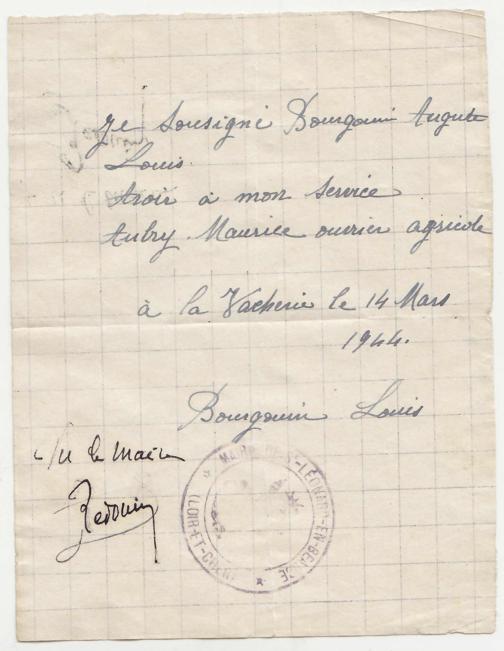 Je Sousigné Bourgouin Auguste
Louis
Avoir à mon Service
Aubry Maurice ouvrier agricole
à la Vacherie le 14 Mars
1944.
Bourgouin Louis
Vu le Maire
MAIRIE DE ST-LÉONARD-EN-BEAUCE
(LOIR-ET-CHER)